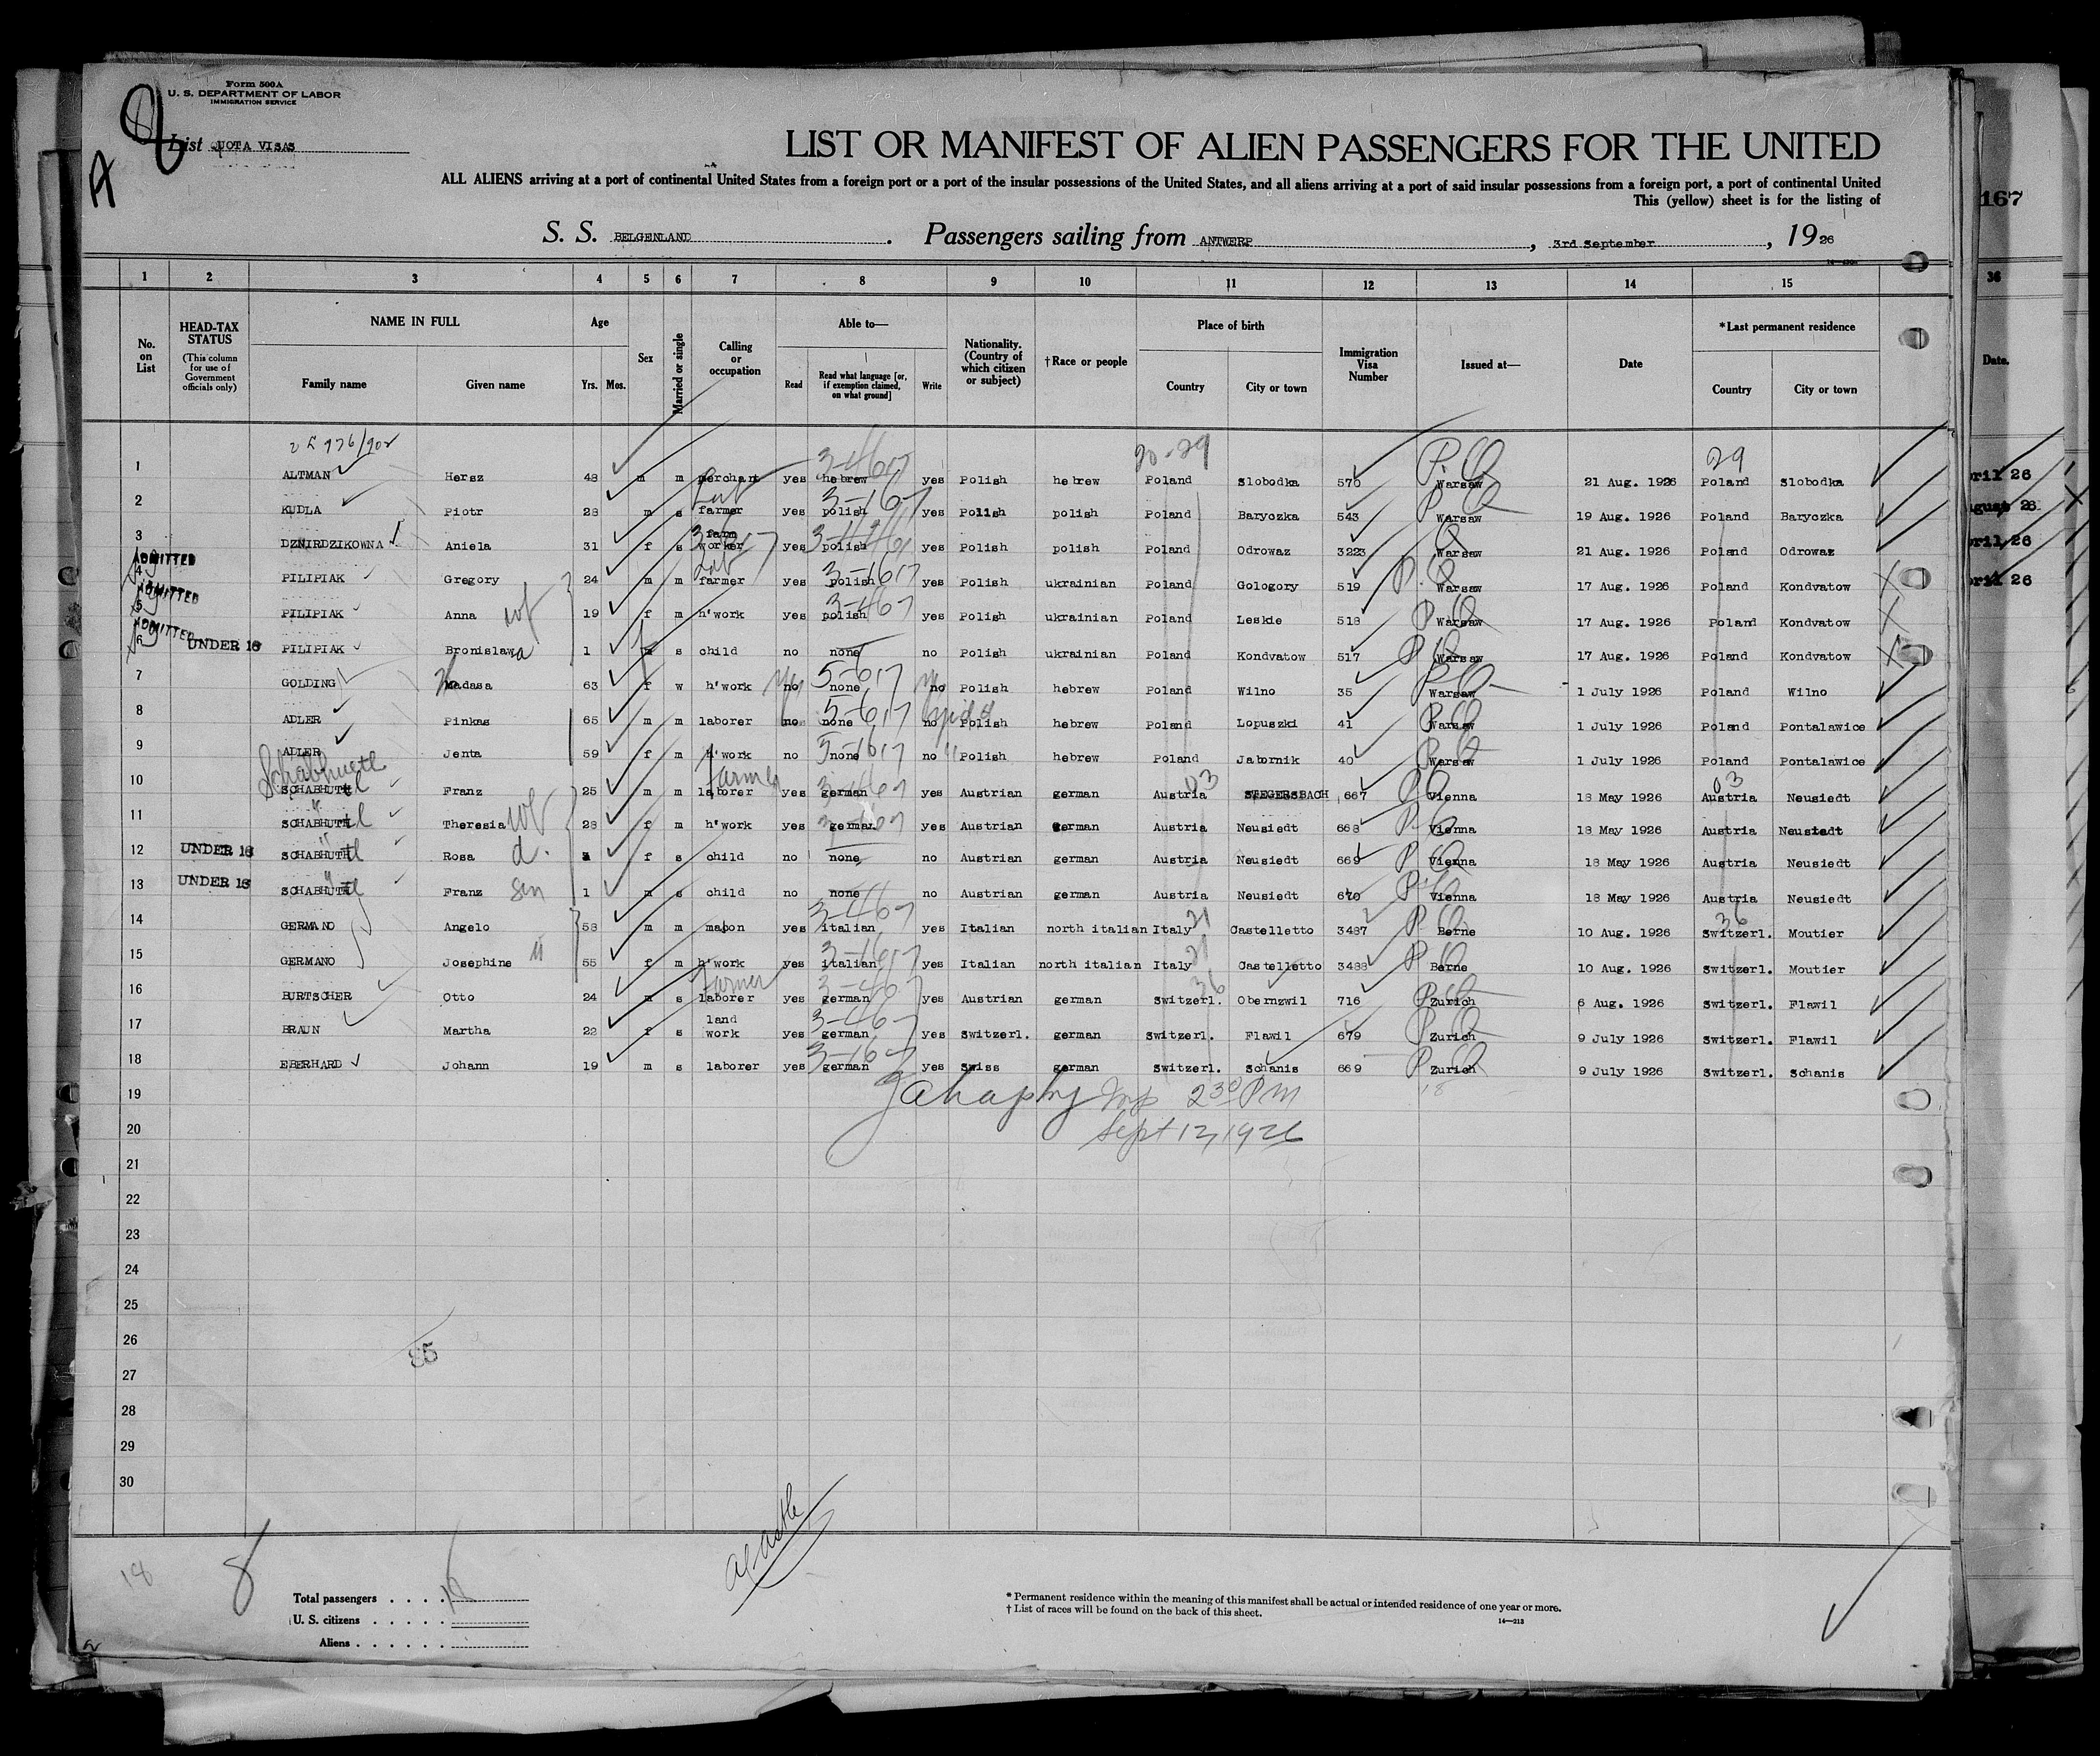 Form 500A
U. S. DEPARTMENT OF LABOR
IMMIGRATION SERVICE
List QUOTA VISAS
A
LIST OR MANIFEST OF ALIEN PASSENGERS FOR THE UNITED
ALL ALIENS arriving at a port of continental United States from a foreign port or a port of the insular possessions of the United States, and all aliens arriving at a port of said insular possessions from a foreign port, a port of continental United
This (yellow) sheet is for the listing of
167
S. S. BELGENLAND. Passengers sailing from ANTWERP, 3rd September, 1926
1 2 3 4 5 6 7 8 9 10 11 12 13 14 15 36
No. on List
HEAD-TAX STATUS (This column for use of Government officials only)
NAME IN FULL
Family name Given name
Age
Yrs. Mos.
Sex
Married or single
Calling or occupation
Able to—
Read
Read what language [or, if exemption claimed, on what ground]
Write
Nationality. (Country of which citizen or subject)
† Race or people
Place of birth
Country City or town
Immigration Visa Number
Issued at—
Date
*Last permanent residence
Country City or town
Date.
20-29 29
1 ALTMAN Hersz 48 m m merchant yes hebrew yes Polish hebrew Poland Slobodka 570 Warsaw 21 Aug. 1926 Poland Slobodka
2 KUDLA Piotr 28 m s farmer yes polish yes Polish polish Poland Baryczka 543 Warsaw 19 Aug. 1926 Poland Baryczka
3 DZNIRDZIKOWNA Aniela 31 f s farm worker yes polish yes Polish polish Poland Odrowaz 3223 Warsaw 21 Aug. 1926 Poland Odrowaz
ADMITTED 4 PILIPIAK Gregory 24 m m farmer yes polish yes Polish ukrainian Poland Gologory 519 Warsaw 17 Aug. 1926 Poland Kondvatow X
ADMITTED 5 PILIPIAK Anna wf 19 f m h'work yes polish yes Polish ukrainian Poland Leskie 518 Warsaw 17 Aug. 1926 Poland Kondvatow X
ADMITTED 6 UNDER 16 PILIPIAK Bronislawa 1 f s child no none no Polish ukrainian Poland Kondvatow 517 Warsaw 17 Aug. 1926 Poland Kondvatow X
7 GOLDING Hadasa 63 f w h'work no none no Polish hebrew Poland Wilno 35 Warsaw 1 July 1926 Poland Wilno
8 ADLER Pinkas 65 m m laborer no none no Polish hebrew Poland Lopuszki 41 Warsaw 1 July 1926 Poland Pontalawice
9 ADLER Jenta 59 f m h'work no none no Polish hebrew Poland Jabornik 40 Warsaw 1 July 1926 Poland Pontalawice
10 SCHABHUTtl Franz 25 m m laborer Farmer yes german yes Austrian german Austria 03 STEGERSBACH 667 Vienna 18 May 1926 Austria 03 Neusiedt
11 SCHABHUTtl Theresia wf 28 f m h'work yes german yes Austrian german Austria Neusiedt 668 Vienna 18 May 1926 Austria Neusiedt
12 UNDER 16 SCHABHUTtl Rosa d. f s child no none no Austrian german Austria Neusiedt 669 Vienna 18 May 1926 Austria Neusiedt
13 UNDER 16 SCHABHUTtl Franz son 1 m s child no none no Austrian german Austria Neusiedt 670 Vienna 18 May 1926 Austria Neusiedt
14 GERMANO Angelo 58 m m mason yes italian yes Italian north italian Italy 21 Castelletto 3487 Berne 10 Aug. 1926 Switzerl. 36 Moutier
15 GERMANO Josephine 55 f m h'work yes italian yes Italian north italian Italy 21 Castelletto 3488 Berne 10 Aug. 1926 Switzerl. Moutier
16 BURTSCHER Otto 24 m s laborer Farmer yes german yes Austrian german Switzerl. 36 Obernzwil 716 Zurich 6 Aug. 1926 Switzerl. Flawil
17 BRAUN Martha 22 f s land work yes german yes Switzerl. german Switzerl. Flawil 679 Zurich 9 July 1926 Switzerl. Flawil
18 EBERHARD Johann 19 m s laborer yes german yes Swiss german Switzerl. Schanis 669 Zurich 9 July 1926 Switzerl. Schanis
19 Insp 2 30 PM 18
20 Sept 12, 1926
21
22
23
24
25
26
85
27
28
29
30
18 8
Total passengers 18
U. S. citizens
Aliens
* Permanent residence within the meaning of this manifest shall be actual or intended residence of one year or more.
† List of races will be found on the back of this sheet.
14—213